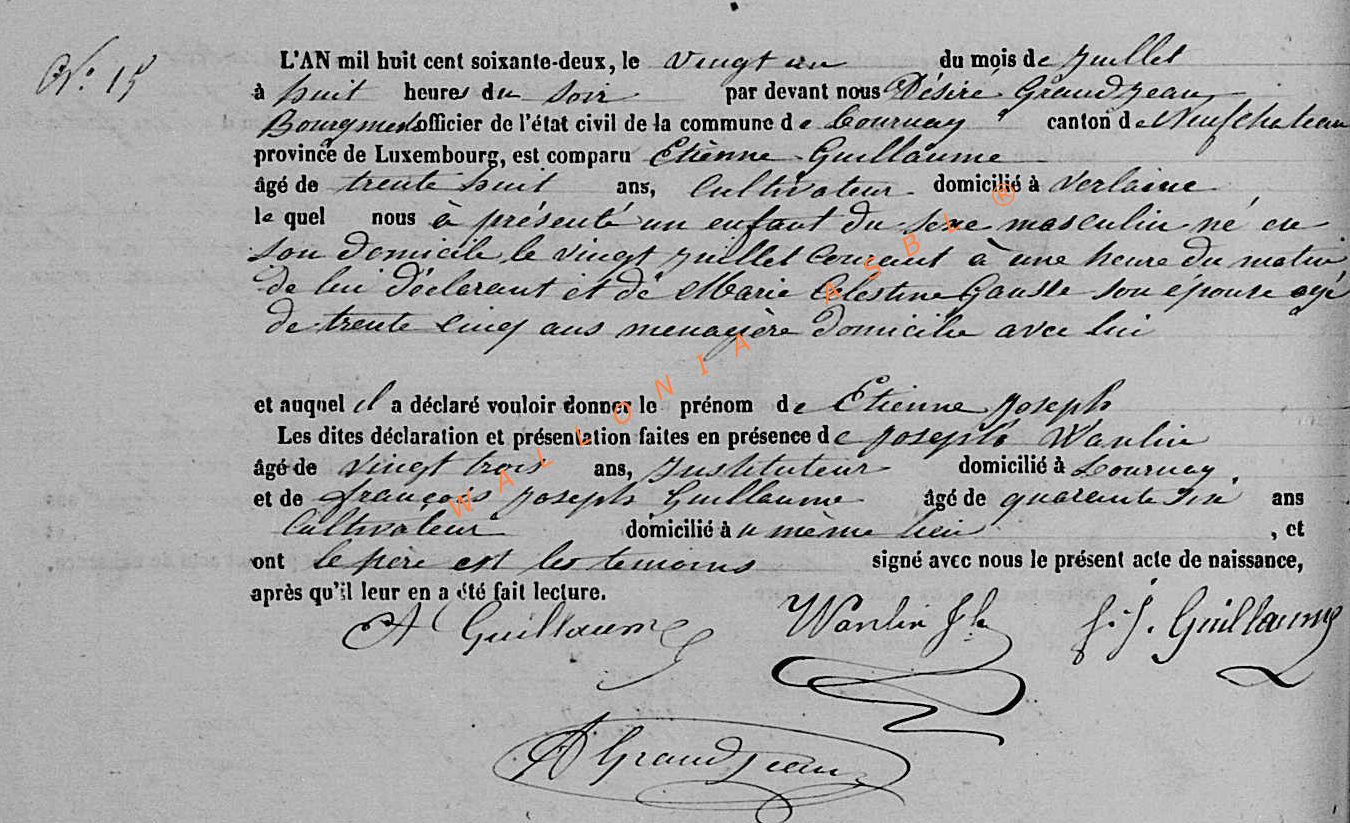 N° 15
L'AN mil huit cent soixante-deux, le vingt un du mois de juillet
à huit heures du soir par devant nous Désiré Grandjean
Bourgmestre officier de l'état civil de la commune de Tournay canton de Neufchateau
province de Luxembourg, est comparu Etienne Guillaume
âgé de trente huit ans, Cultivateur domicilié à Verlaine
le quel nous à présenté un enfant du sexe masculin né en
son domicile le vingt juillet Courant à une heure du matin
de lui déclarant et de Marie Célestine Gausse son épouse agé
de trente Cinq ans menagère domicilie avec lui
et auquel il a déclaré vouloir donner le prénom de Etienne Joseph
Les dites déclaration et présentation faites en présence de Joseph Wanlin
âgé de vingt trois ans, Instituteur domicilié à Tournay
et de françois Joseph Guillaume âgé de quarante six ans
Cultivateur domicilié à u même lieu , et
ont le père est les temoins signé avec nous le présent acte de naissance,
après qu'il leur en a été fait lecture.
Guillaume Wanlin Jh f. j. Guillaume
Grandjean
WALLONIA ASBL ®